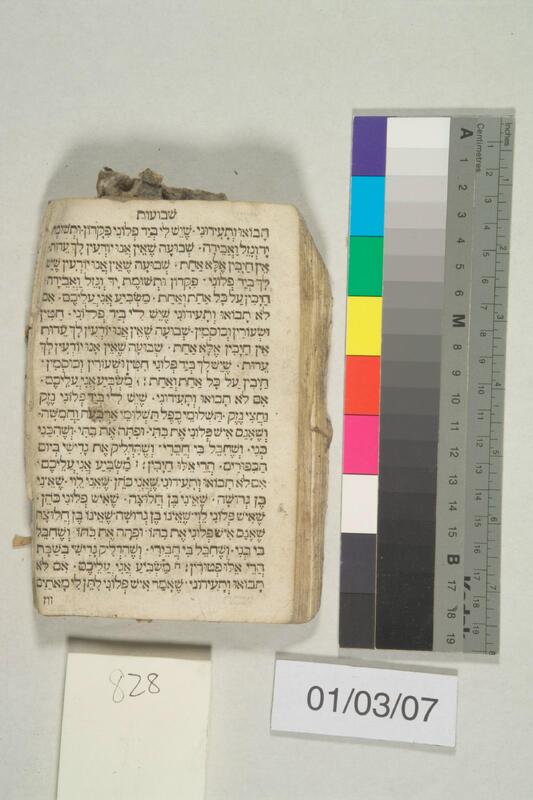 שבועות
תבואו ותעידוני שיש לי ביד פלוני פקדון ותשומת
יד וגזל ואבידה. שבועה שאין אנו יודעין לך עדות
אין חיבין אלא אחת. שבועה שאין אנו יודעין שיש
לך ביד פלוני. פקדון ותשומת יד וגזל ואבידה
חיבין על כל אחת ואחת. משביע אני עליכם. אם
לא תבואו ותעידוני שיש לי ביד פלוני. חטין
ושעורין וכוסמין. שבועה שאין אנו יודעין לך עדות
אין חיבין אלא אחת. שבועה שאין אנו יודעין לך
עדות. שיש לך ביד פלוני חטין ושעורין וכוסמין.
חיבין על כל אחת ואחת: משביע אני עליכם.
אם לא תבואו ותעידוני. שיש לי ביד פלוני נזק
וחצי נזק. תשלומי כפל תשלומי ארבעה וחמשה.
ושאנס איש פלוני את בתי. ופתה את בתי. ושהכני
בני. ושחבל בי חברי. ושהדליק את גדישי ביום
הכפורים. הרי אלו חיבין: משביע אני עליכם.
אם לא תבואו ותעידוני שאני כהן שאני לוי. שאיני
בן גרושה. שאיני בן חלוצה. שאיש פלוני כהן.
שאיש פלוני לוי שאינו בן גרושה שאינו בן חלוצה
שאנס איש פלוני את בתו. ופתה את בתו. ושחבל
בי בני. ושחבל בי חבירי. ושהדליק גדישי בשבת
הרי אלו פטורין: משביע אני עליכם. אם לא
תבואו ותעידוני שאמר איש פלוני ליתן לי מאתים
זוז
Inches
Centimetres
A 1 2 3 4 5 6 M 8 9 10 11 12 13 14 15 B 17 18 19
Kodak
828
01/03/07